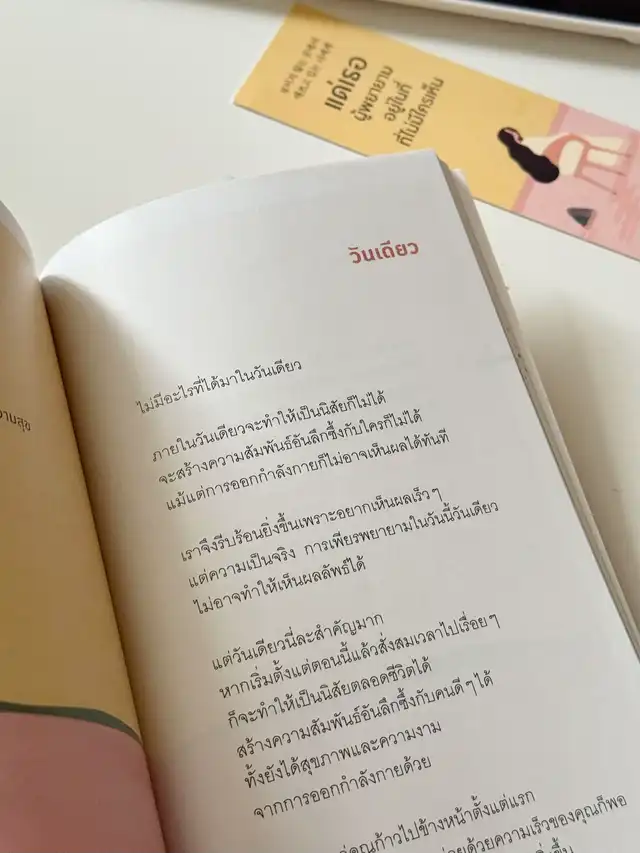 แด่เธอ
ผู้พยายาม
อยู่ในที่
ที่ไม่มีใครเห็น
วันเดียว
ไม่มีอะไรที่ได้มาในวันเดียว
ภายในวันเดียวจะทำให้เป็นนิสัยก็ไม่ได้
จะสร้างความสัมพันธ์อันลึกซึ้งกับใครก็ไม่ได้
แม้แต่การออกกำลังกายก็ไม่อาจเห็นผลได้ทันที
เราจึงรีบร้อนยิ่งขึ้นเพราะอยากเห็นผลเร็วๆ
แต่ความเป็นจริง การเพียรพยายามในวันนี้วันเดียว
ไม่อาจทำให้เห็นผลลัพธ์ได้
แต่วันเดียวนี่ละสำคัญมาก
หากเริ่มตั้งแต่ตอนนี้แล้วสั่งสมเวลาไปเรื่อยๆ
ก็จะทำให้เป็นนิสัยตลอดชีวิตได้
สร้างความสัมพันธ์อันลึกซึ้งกับคนดีๆ ได้
ทั้งยังได้สุขภาพและความงาม
จากการออกกำลังกายด้วย
คุณก้าวไปข้างหน้าตั้งแต่แรก
ด้วยความเร็วของคุณก็พอ